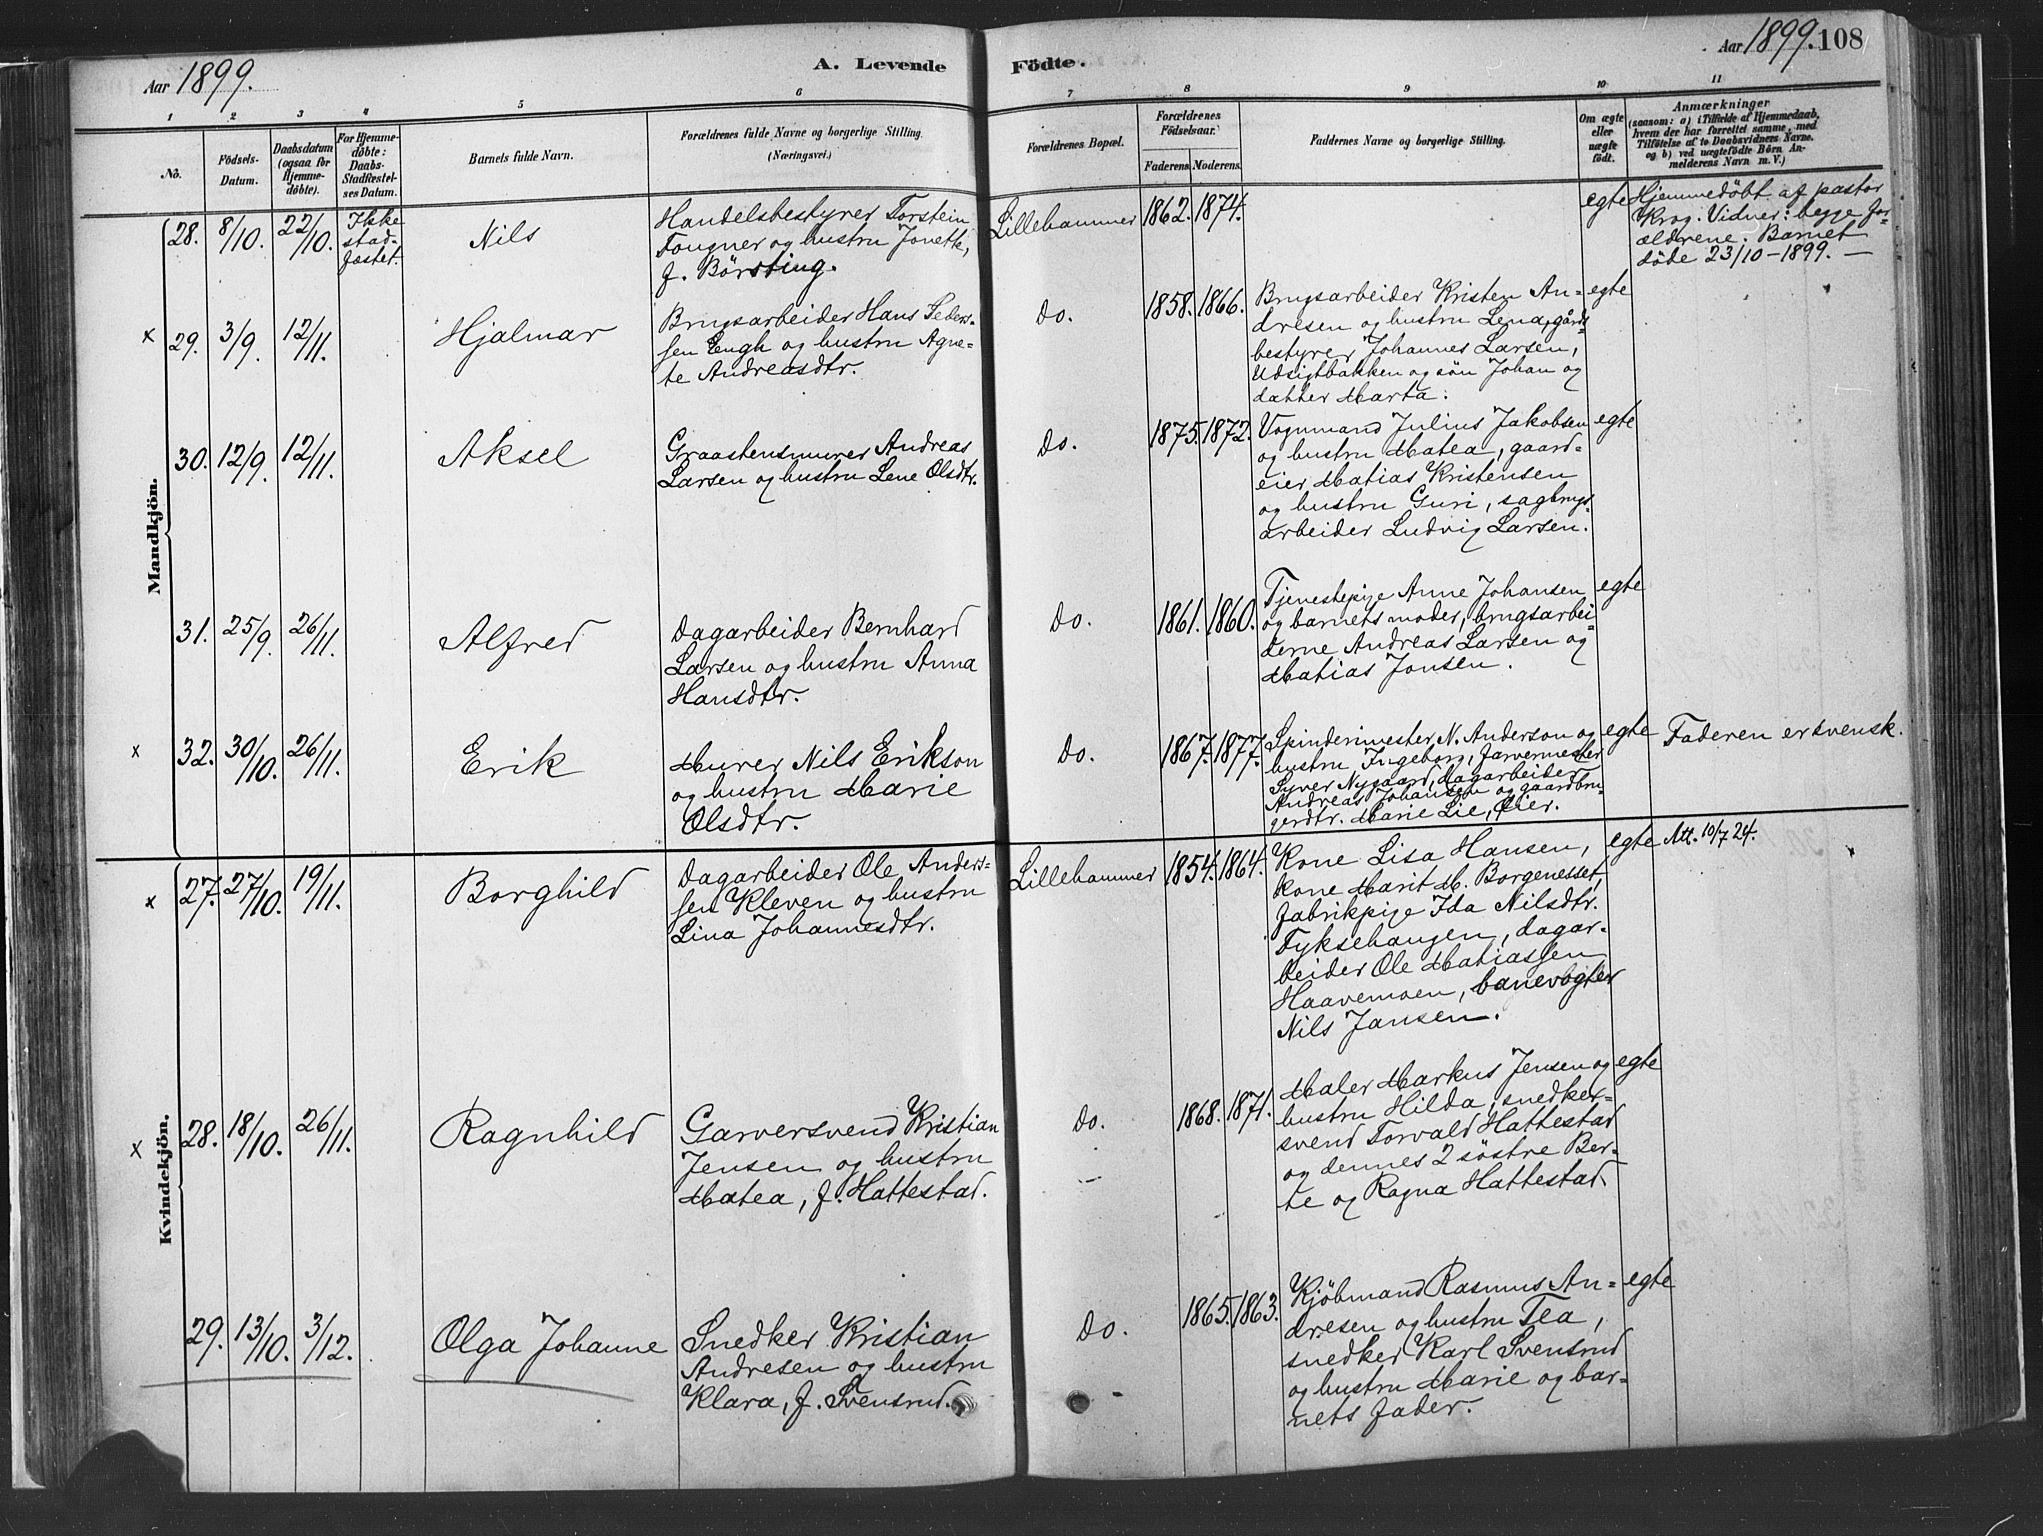 Aar 1899.
A. Levende
Födte.
Aar 1899. 108
1
2
3
4
5
6
7
8
9
10
11
No.
Födsels-
Datum.
Daabsdatum
(ogsaa for
Hjemme-
döbte).
For Hjemme-
döbte:
Daabs-
Stadfæstel-
ses Datum.
Barnets fulde Navn.
Forældrenes fulde Navne og borgerlige Stilling.
(Næringsvei.)
Forældrenes Bopæl.
Forældrenes
Födselsaar.
Faderens
Moderens.
Faddernes Navne og borgerlige Stilling.
Om ægte
eller
uægte
födt.
Anmærkninger
(saasom: a) i Tilfælde af Hjemmedaab,
hvem der har forrettet samme, med
Tilföielse af to Daabsvidners Navne.
og b) ved uægtefödte Börn An-
melderens Navn m. V.)
Mandkjön.
28. 8/10. 22/10.
Ikke
stad-
fæstet.
Nils
Handelsbestyrer Torstein
Fougner og hustru Jonette,
f. Börsting.
Lillehammer 1862. 1874.
egte
Hjemmedöbt af pastor
Krog. Vidner: begge for-
ældrene. Barnet
döde 23/10-1899. —
x 29. 3/9. 12/11.
Hjalmar
Brugsarbeider Hans Peders-
sen Engh og hustru Agne-
te Andreasdtr.
Do. 1858. 1866.
Brugsarbeider Kristen An-
dresen og hustru Lena, gårds-
bestyrer Johannes Larsen,
Udsigtbakken og sön Johan og
datter Marta.
egte
30. 12/9. 12/11.
Aksel
Graastensmurer Andreas
Larsen og hustru Lene Olsdtr.
Do. 1875. 1872.
Vognmand Julius Jakobsen
og hustru Matea, gaard-
eier Matias Kristensen
og hustru Guri, sagbrugs-
arbeider Ludvig Larsen.
egte
31. 25/9. 26/11.
Alfred
Dagarbeider Bernhard
Larsen og hustru Anna
Hansdtr.
Do. 1861. 1860.
Tjenestepige Anne Johansen
og barnets moder, brugsarbei-
derne Andreas Larsen og
Matias Jonsen.
egte
x 32. 30/10. 26/11.
Erik
Murer Nils Erikson
og hustru Marie
Olsdtr.
Do. 1867. 1877.
Spinderimester N. Anderson og
hustru Ingeborg, farvermester
Syver Nygaard, dagarbeider
Andreas Johansen og gaardbru-
gerdtr. Marie Lie, Öier.
egte
Faderen er svensk.
Kvindekjön.
x 27. 27/10. 19/11.
Borghild
Dagarbeider Ole Anders-
sen Kleven og hustru
Lina Johannesdtr.
Lillehammer 1854. 1864.
Kone Lisa Hansen,
kone Marit M. Borgenesset,
fabrikpige Ida Nilsdtr.
Tyksehaugen, dagar-
beider Ole Matiassen
Haavemoen, banevogter
Nils Jansen.
egte
Att. 10/7 24.
x 28. 18/10. 26/11.
Ragnhild
Garversvend Kristian
Jensen og hustru
Matea, f. Hattestad.
Do. 1868. 1871.
Maler Markus Jensen og
hustru Hilda, snedker-
svend Torvald Hattestad
og dennes 2 söstre Ber-
te og Ragna Hattestad
egte
29. 13/10. 3/12.
Olga Johanne
Snedker Kristian
Andresen og hustru
Klara, f. Svensrud.
Do. 1865. 1863.
Kjöbmand Rasmus An-
dresen og hustru Tea,
snedker Karl Svensrud
og hustru Marie og bar-
nets fader.
egte